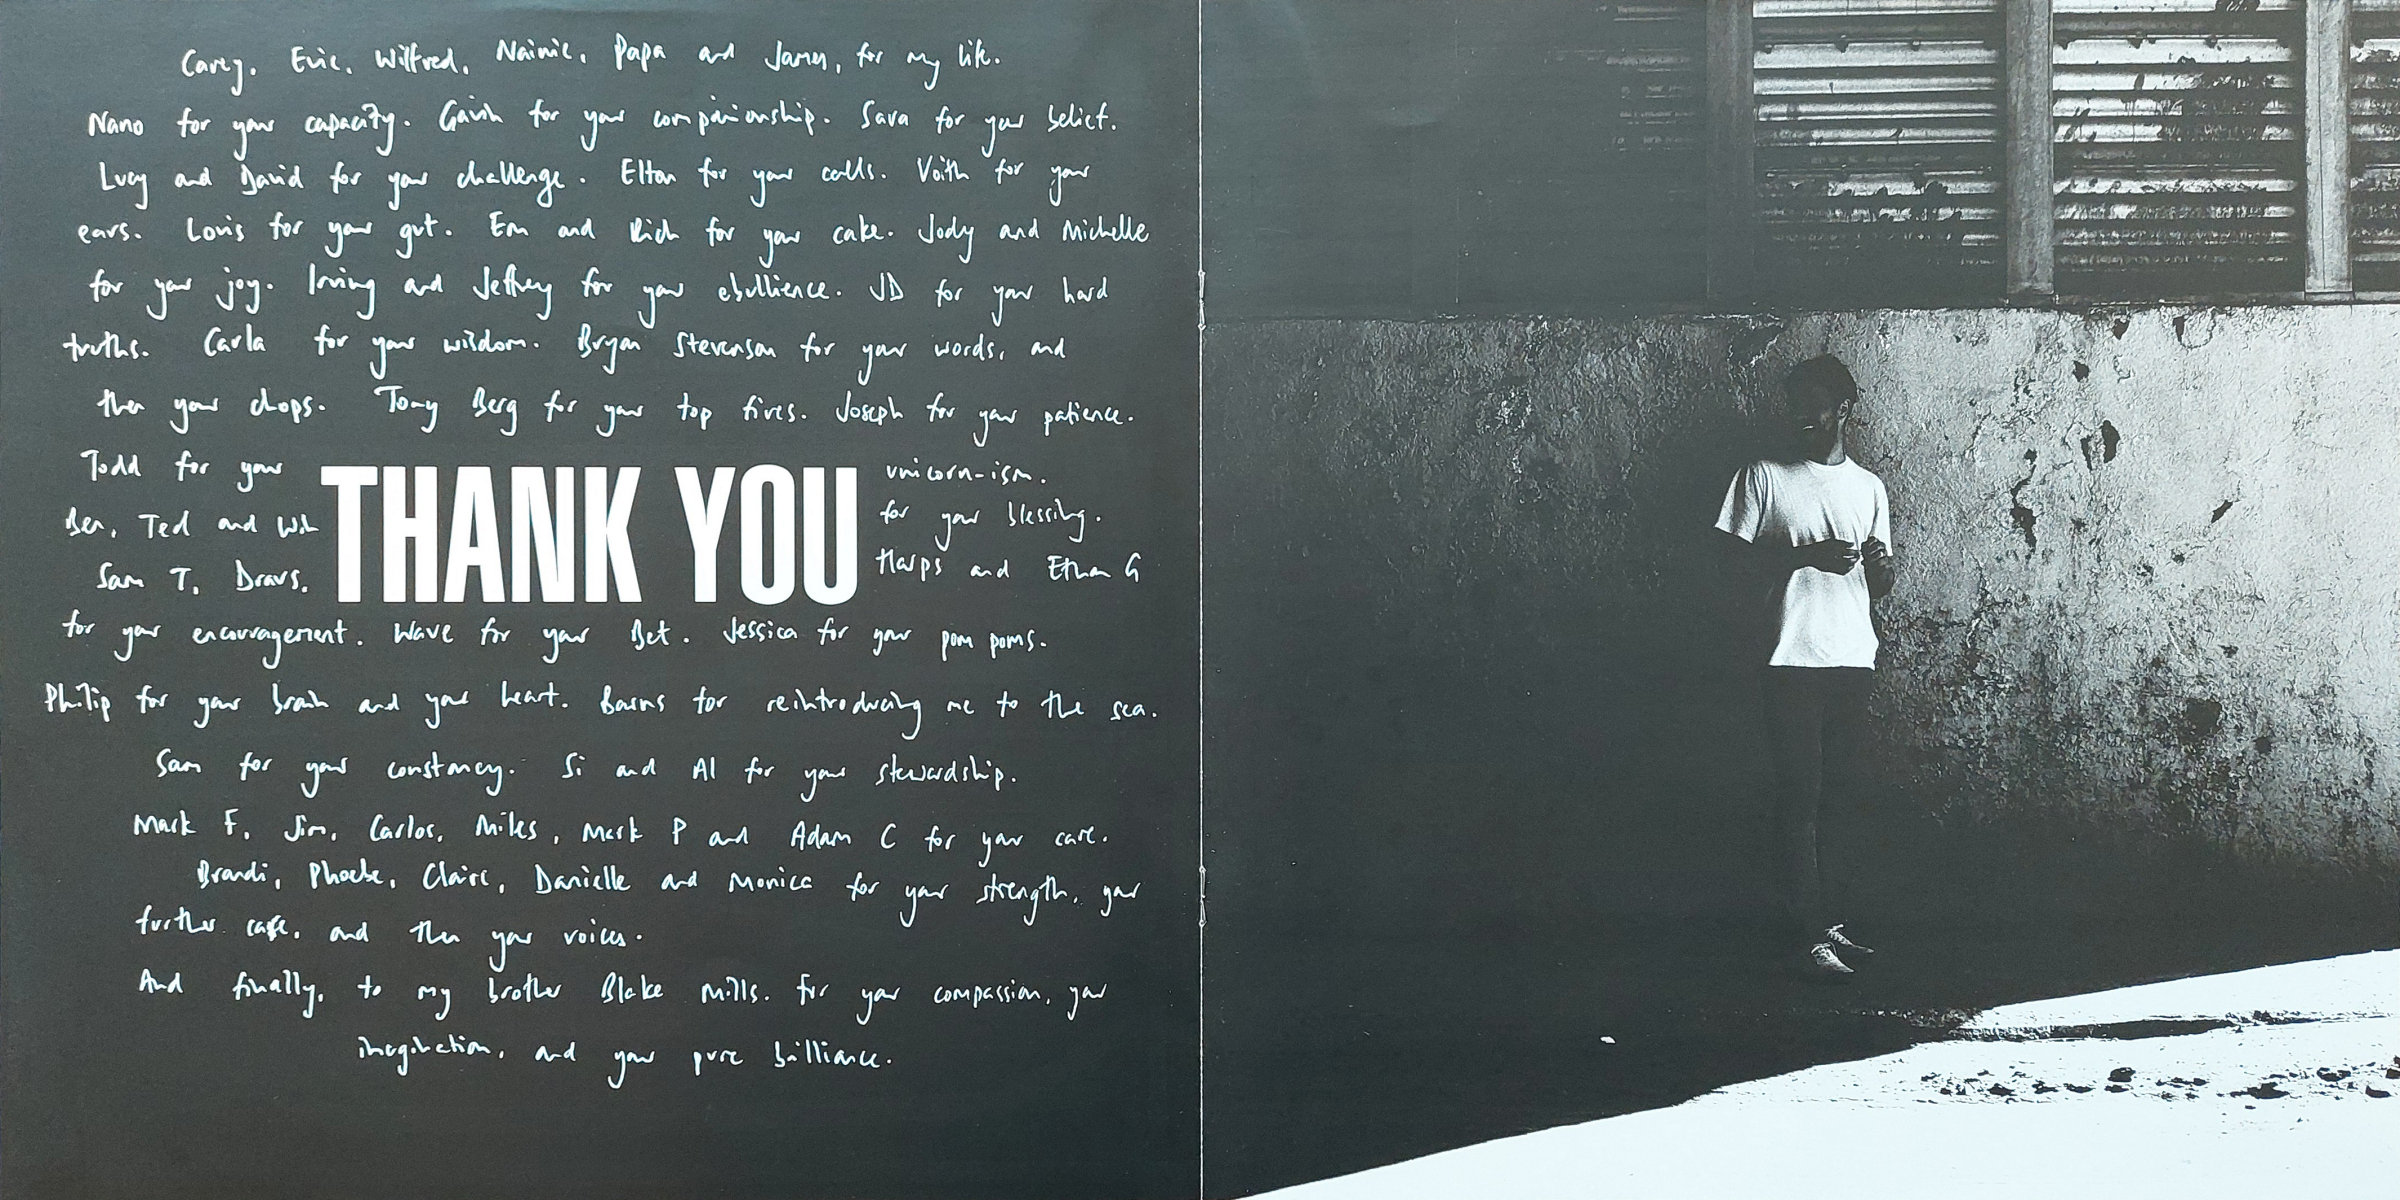 Carey, Evie, Wilfred, Nainie, Papa and James, for my life.
Nano for your capacity. Gavin for your companionship. Sava for your belief.
Lucy and David for your challenge. Elton for your calls. Voith for your
ears. Louis for your gut. Em and Rich for your cake. Jody and Michelle
for your joy. Irving and Jeffrey for your ebullience. JD for your hard
truths. Carla for your wisdom. Bryan Stevenson for your words, and
then your chops. Tony Berg for your top fives. Joseph for your patience.
Todd for your unicorn-ism.
Ben, Ted and for your blessing.
Sam T, Dravs, THANK YOU Harps and Ethan G
for your encouragement. Wave for your Bet. Jessica for your pom poms.
Philip for your brain and your heart. Barns for reintroducing me to the sea.
Sam for your constancy. Si and Al for your stewardship.
Mark F, Jim, Carlos, Miles, Mark P and Adam C for your care.
Brandi, Phoebe, Claire, Danielle and Monica for your strength, your
further care, and then your voices.
And finally, to my brother Blake Mills. For your compassion, your
imagination, and your pure brilliance.